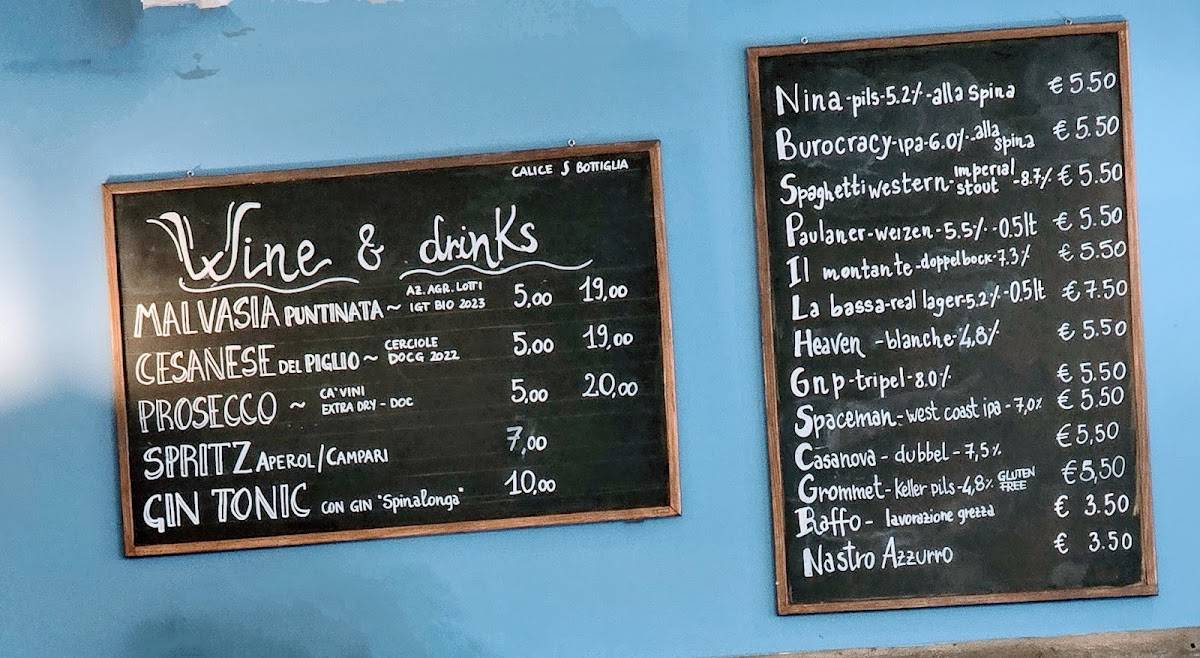 CALICE § BOTTIGLIA
Wine & drinks
MALVASIA PUNTINATA ~ AZ. AGR. LOTTI IGT BIO 2023 5,00 19,00
CESANESE DEL PIGLIO ~ CERCIOLE DOCG 2022 5,00 19,00
PROSECCO ~ CA' VINI EXTRA DRY - DOC 5,00 20,00
SPRITZ APEROL/CAMPARI 7,00
GIN TONIC CON GIN "Spinalonga" 10,00
Nina-pils-5.2%-alla spina € 5.50
Burocracy-ipa-6.0%-alla spina € 5.50
Spaghetti western-imperial stout-8.7% € 5.50
Paulaner-weizen-5.5%-0.5lt € 5.50
Il montante-doppelbock-7.3% € 5.50
La bassa-real lager-5.2%-0.5lt € 7.50
Heaven -blanche-4,8% € 5.50
Gnp-tripel-8.0% € 5.50
Spaceman-west coast ipa-7,0% € 5.50
Casanova-dubbel-7,5% € 5,50
Grommet-Keller pils-4,8% GLUTEN FREE € 5,50
Raffo- lavorazione grezza € 3.50
Nastro Azzurro € 3.50